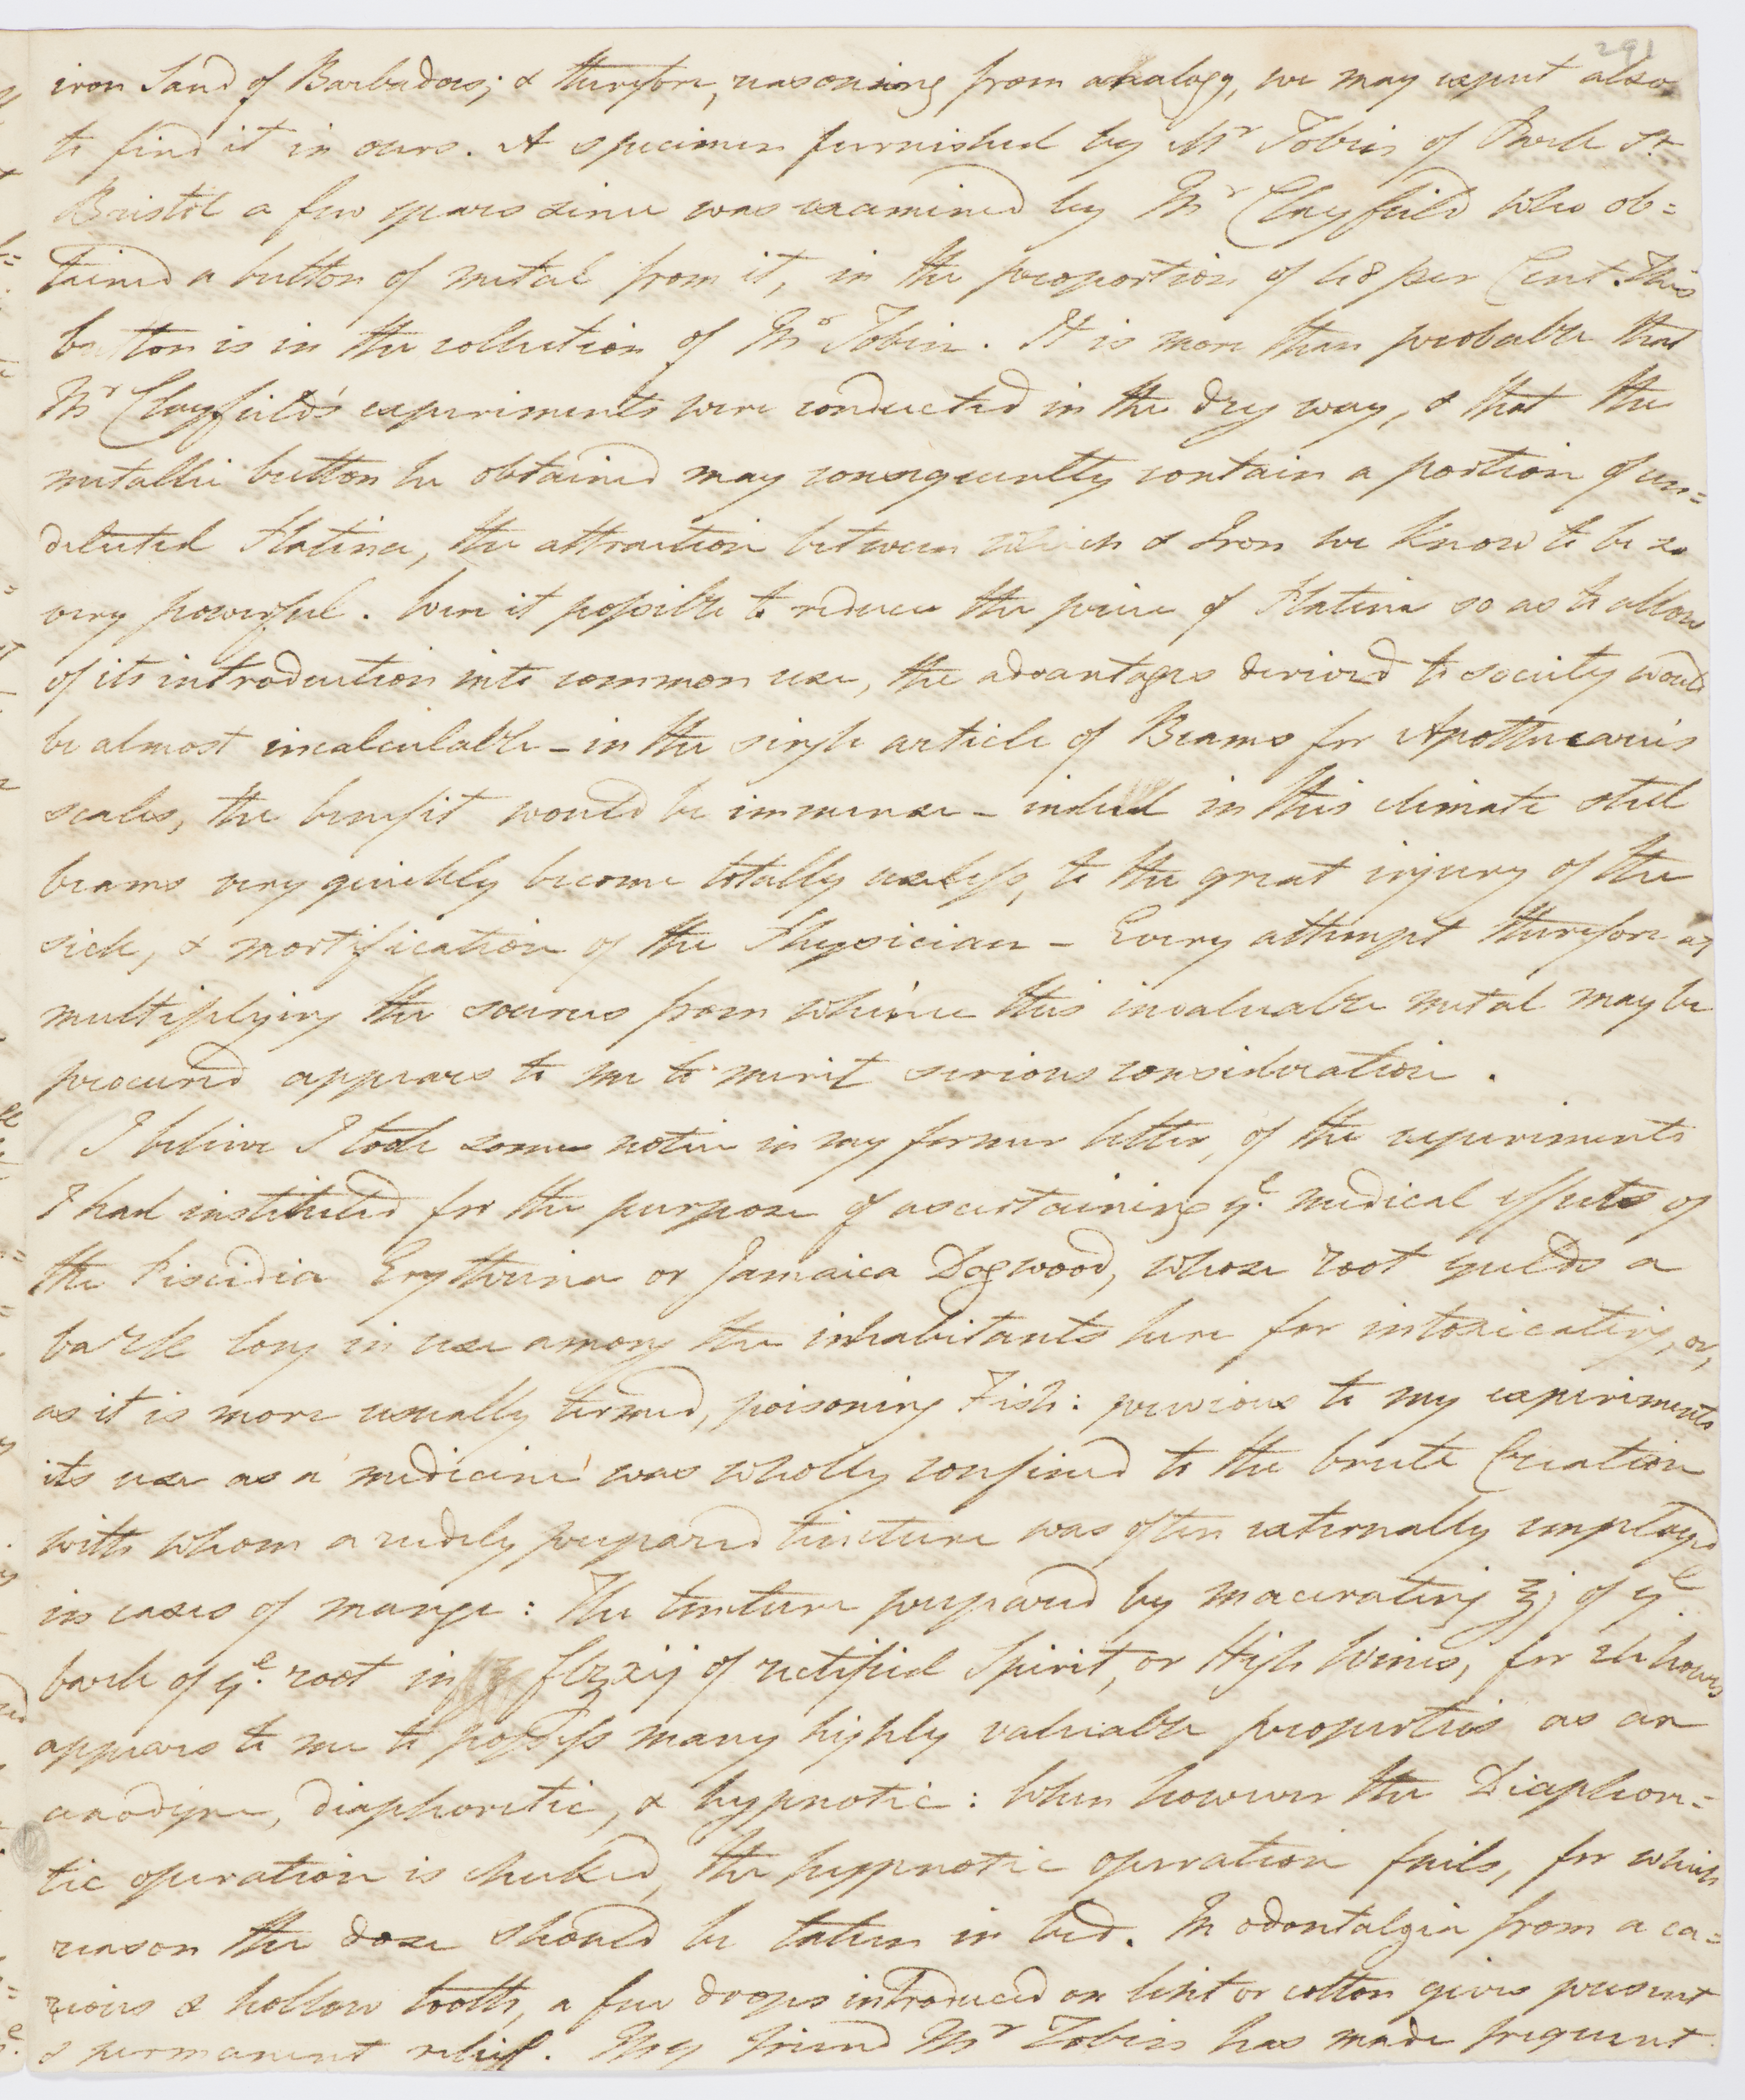 291
iron Sand of Barbadoes; & therefore, reasoning from analogy, we may expect also
to find it in ours. A specimen furnished by Mr Tobin of Park St
Bristol a few years since was examined by Mr Clayfield who ob=
tained a button of metal from it, in the proportion of 68 per Cent. This
button is in the collection of Mr Tobin. It is more than probable that
Mr Clayfield's experiments were conducted in the dry way, & that the
metallic button he obtained may consequently contain a portion of un=
detected Platina, the attraction between which & Iron we know to be so
very powerful. Were it possible to reduce the price of Platina so as to allow
of its introduction into common use, the advantages derived to society would
be almost incalculable – in the single article of Beams for Apothecaries
scales, the benefit would be immense – indeed in this climate steel
beams very quickly become totally useless, to the great injury of the
sick, & mortification of the Physician – Every attempt therefore at
multiplying the sources from whence this invaluable metal may be
procured appears to me to merit serious consideration.
I believe I took some notice in my former letter, of the experiments
I had instituted for the purpose of ascertaining ye. medical effects of
the Piscidia Erythrina or Jamaica Dogwood, whose root yields a
bark long in use among the inhabitants here for intoxicating, or,
as it is more usually termed, poisoning Fish: previous to my experiments
its use as a medicine was wholly confined to the brute Creation
with whom a rudely prepared tincture was often externally employed
in cases of mange: The tincture prepared by macerating ℥j of ye
bark of ye. root in fl℥xij of rectified Spirit, or High Wines, for 24 hours
appears to me to possess many highly valuable properties as an
anodyne, diaphoretic, & hypnotic: When however the Diaphore=
tic operation is checked, the hypnotic operation fails, for which
reason the dose should be taken in bed. In odontalgia from a ca=
rious & hollow tooth, a few drops introduced on lint or cotton gives present
& permanent relief. My friend Mr Tobin has made frequent